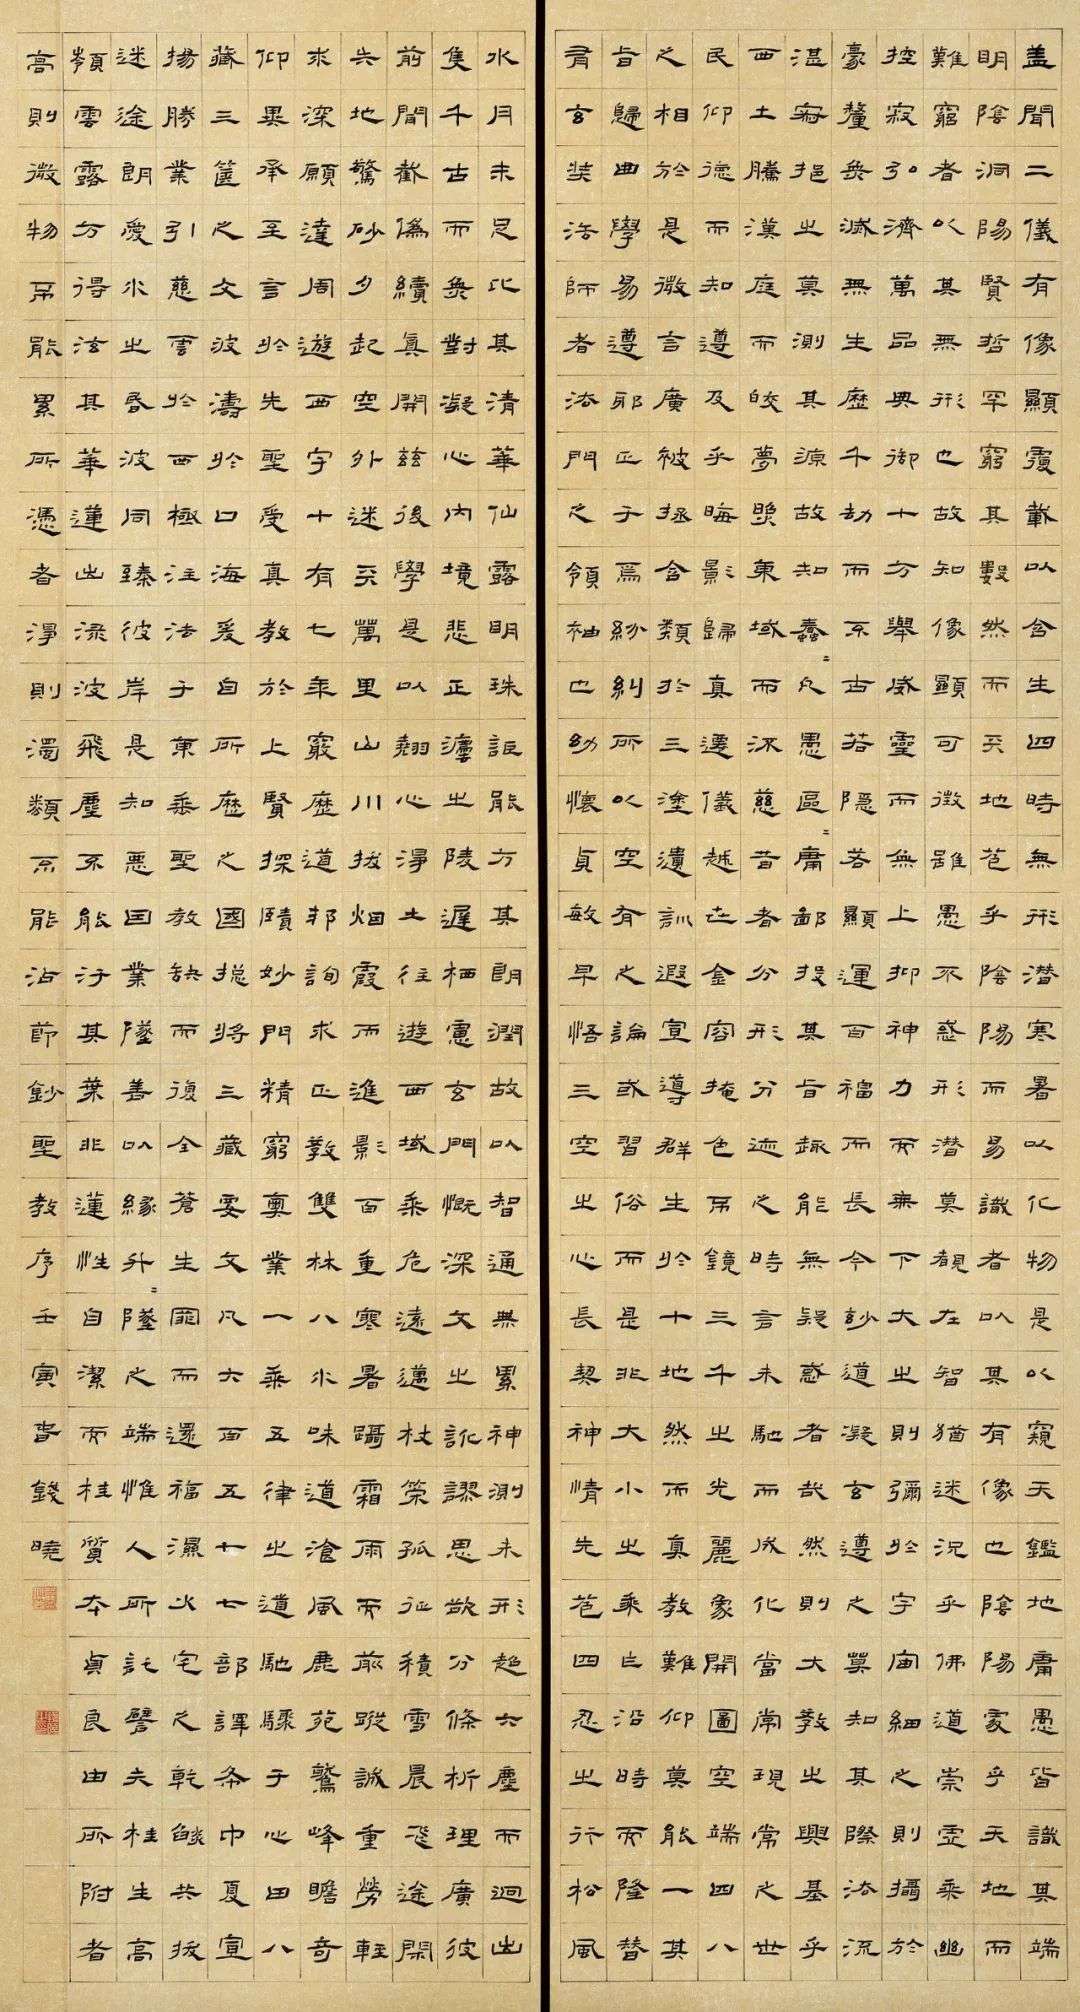 蓋聞二儀有像顯覆載以含生四時無形潛寒暑以化物是以窺天鑑地庸愚皆識其端
明陰洞陽賢哲罕窮其數然而天地苞乎陰陽而易識者以其有像也陰陽處乎天地而
難窮者以其無形也故知像顯可徵雖愚不惑形潛莫覩在智猶迷況乎佛道崇虛乘幽
控寂弘濟萬品典御十方舉威靈而無上抑神力而無下大之則彌於宇宙細之則攝於
豪釐無滅無生歷千劫而不古若隱若顯運百福而長今妙道凝玄遵之莫知其際法流
湛寂挹之莫測其源故知蠢〻凡愚區〻庸鄙投其旨趣能無疑惑者哉然則大教之興基乎
西土騰漢庭而皎夢照東域而流慈昔者分形分迹之時言未馳而成化當常現常之世
民仰德而知遵及乎晦影歸真遷儀越世金容掩色不鏡三千之光麗象開圖空端四八
之相於是微言廣被拯含類於三塗遺訓遐宣導群生於十地然而真教難仰莫能一其
旨歸曲學易遵邪正于焉紛糾所以空有之論或習俗而是非大小之乘乍沿時而隆替
有玄奘法師者法門之領袖也幼懷貞敏早悟三空之心長契神情先苞四忍之行松風
水月未足比其清華仙露明珠詎能方其朗潤故以智通無累神測未形超六塵而迥出
隻千古而無對凝心內境悲正法之陵遲栖慮玄門慨深文之訛謬思欲分條析理廣彼
前聞截偽續真開茲後學是以翹心淨土往遊西域乘危遠邁杖策孤征積雪晨飛途閒
失地驚砂夕起空外迷天萬里山川拔烟霞而進影百重寒暑躡霜雨而前蹤誠重勞輕
求深願達周遊西宇十有七年窮歷道邦詢求正教雙林八水味道飡風鹿菀鷲峰瞻奇
仰異承至言於先聖受真教於上賢探賾妙門精窮奧業一乘五律之道馳驟于心田八
藏三篋之文波濤於口海爰自所歷之國捴將三藏要文凡六百五十七部譯布中夏宣
揚勝業引慈雲於西極注法于東垂聖教缺而復全蒼生罪而還福濕火宅之乾燄共拔
迷途朗愛水之昏波同臻彼岸是知惡因業墜善以緣升〻墜之端惟人所託譬夫桂生高
嶺雲露方得泫其華蓮出淥波飛塵不能汙其葉非蓮性自潔而桂質本貞良由所附者
高則微物不能累所憑者淨則濁類不能沾節鈔聖教序壬寅春錢曉